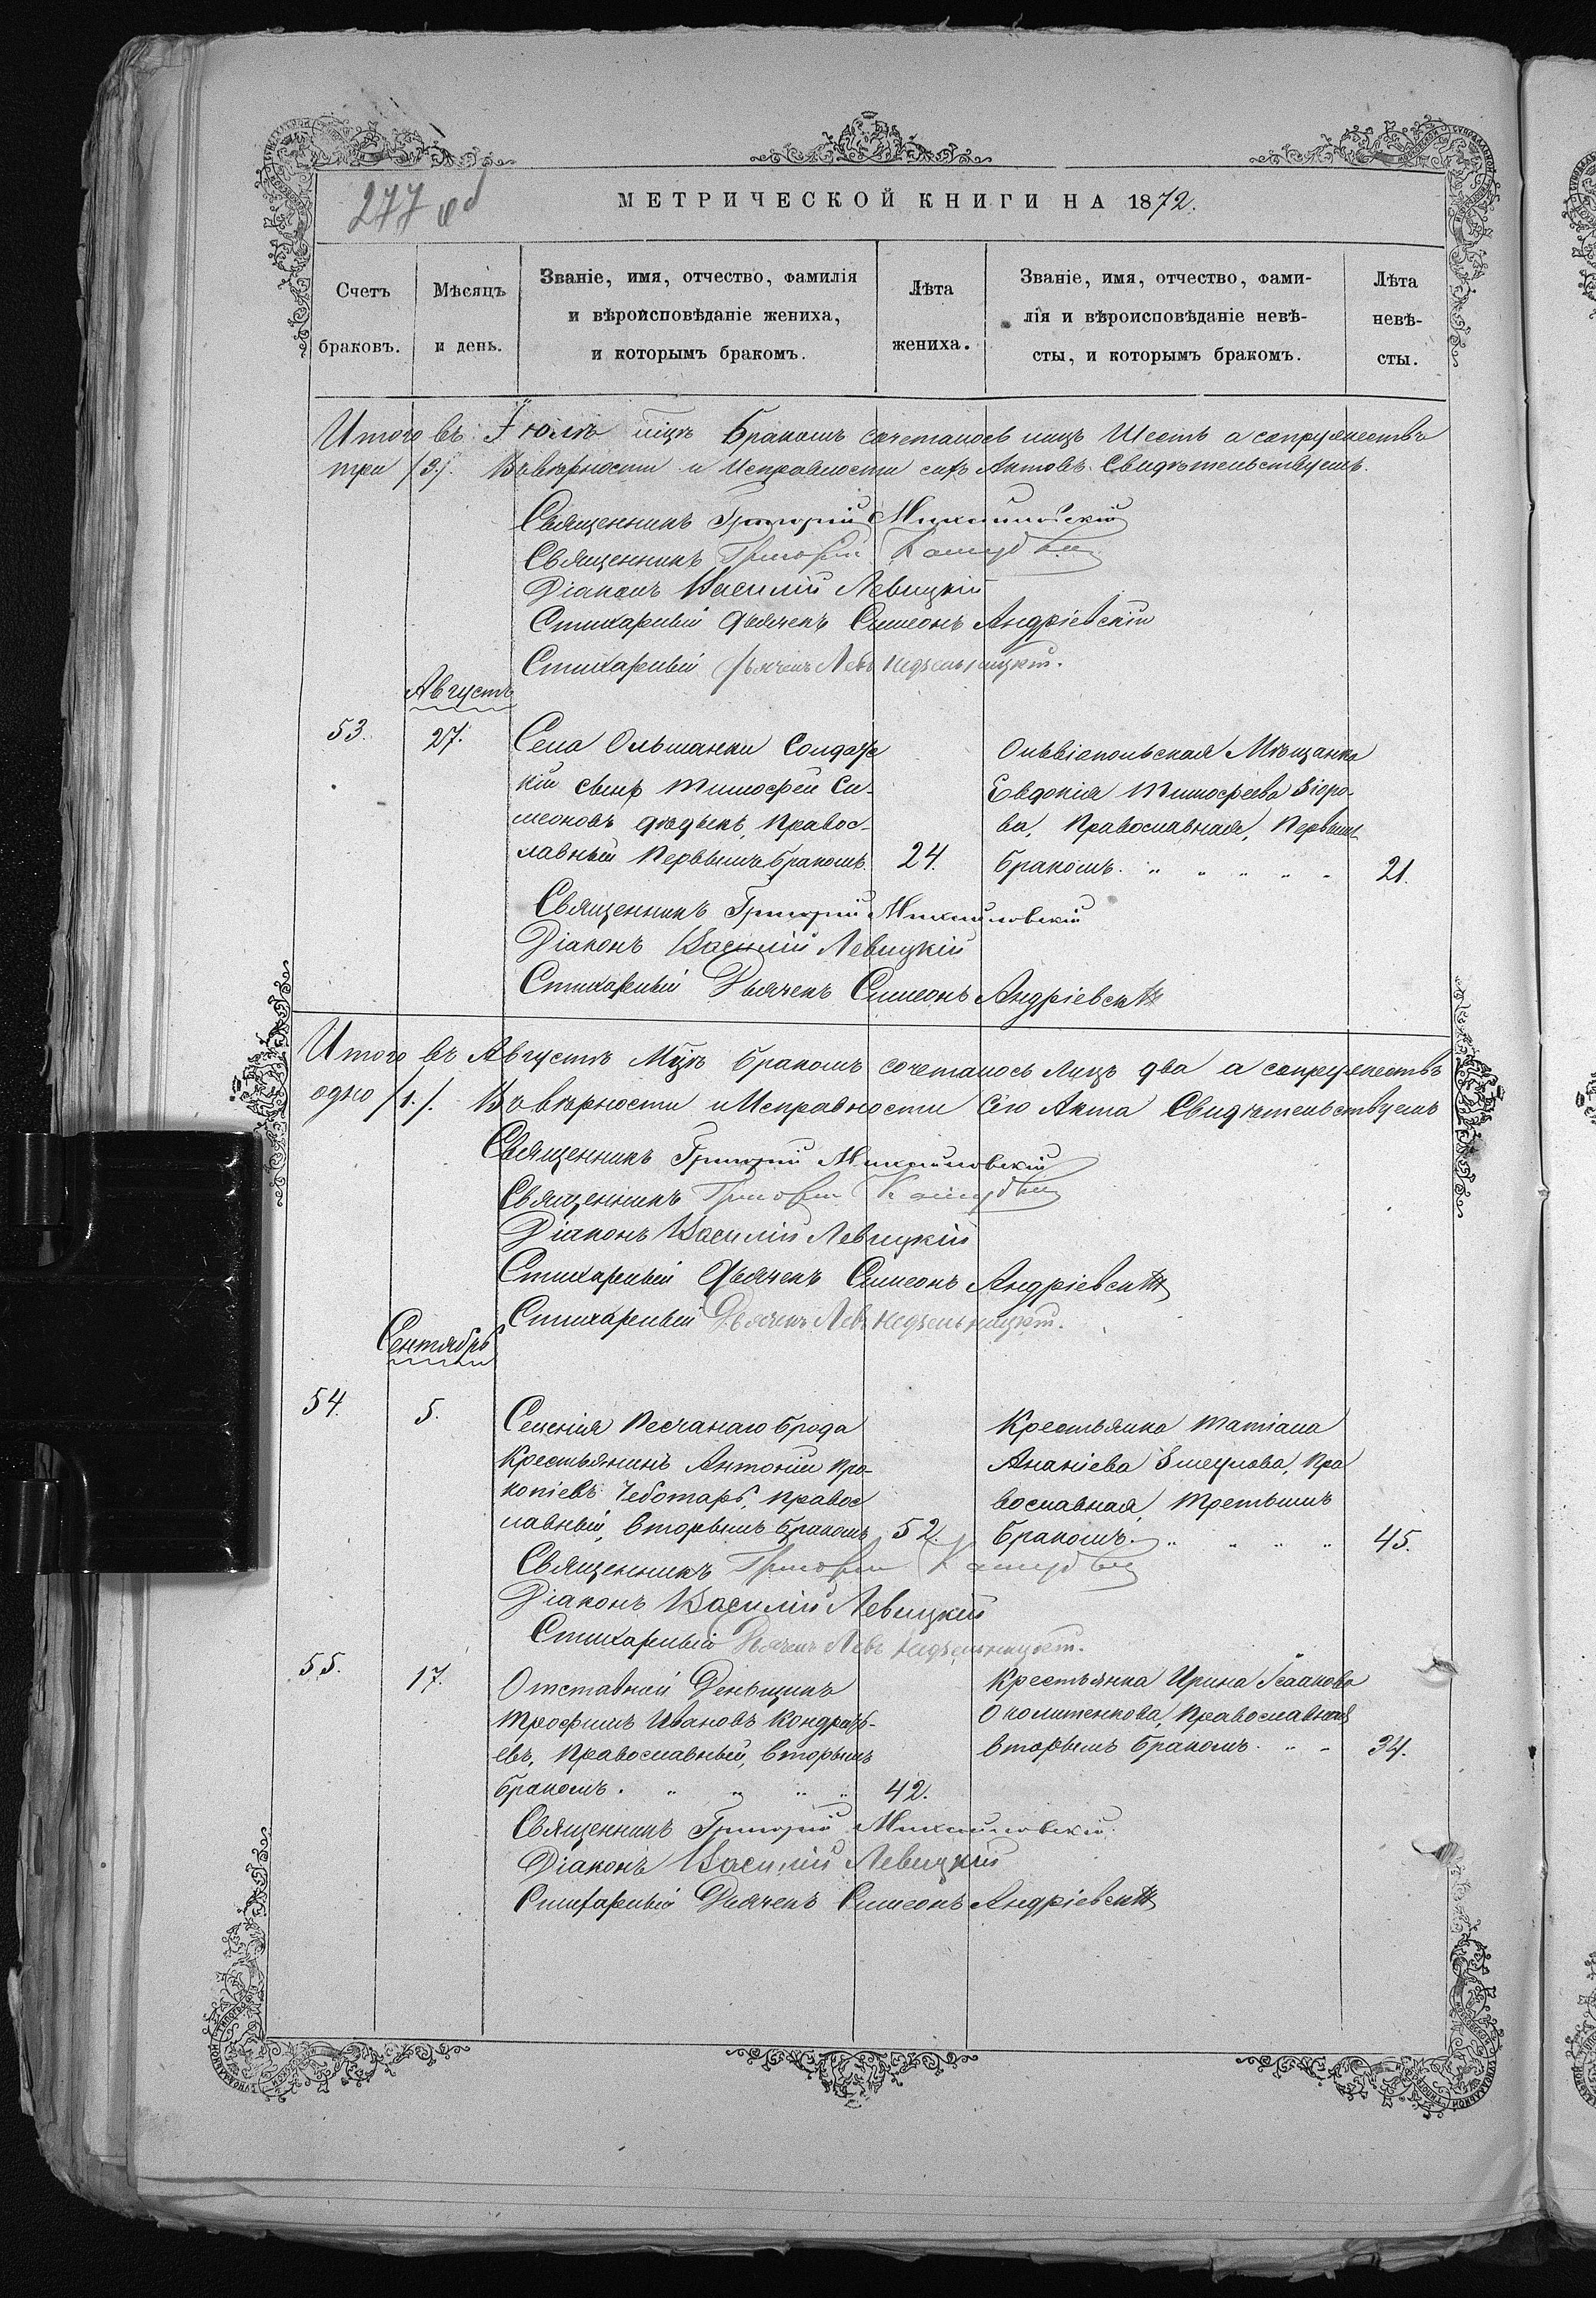 277 об
МЕТРИЧЕСКОЙ КНИГИ НА 1872.
Счетъ браковъ.
Мѣсяцъ и день.
Званіе, имя, отчество, фамилія
и вѣроисповѣданіе жениха,
и которымъ бракомъ.
Лѣта жениха.
Званіе, имя, отчество, фами-
лія и вѣроисповѣданіе невѣ-
сты, и которымъ бракомъ.
Лѣта невѣ-
сты.
Итого въ Іюлѣ мцѣ Бракомъ сочеталось лицъ Шесть а супружествъ
три /3/. Въ вѣрности и Исправности сихъ Актовъ Свидѣтельствуемъ.
Священникъ Григорій Михайловскій
Священникъ Григорій
Діаконъ Василій Левицкій
Стихарный Дьячекъ Симеонъ Андріевскій
Стихарный Дьячекъ Левъ Недзельницкій.
Августъ
53. 27.
Села Ольшанки Солдатс
кій сынъ Тимофей Си-
меоновъ Дѣдыкъ, Правос-
лавный Первымъ бракомъ. 24.
Ольвіопольская Мѣщанка
Евдокія Тимофеева
ва, Православная, Первымъ
бракомъ. " " " " " 21.
Священникъ Григорій Михайловскій
Діаконъ Василій Левицкій
Стихарный Дьячекъ Симеонъ Андріевскій
Итого въ Августѣ Мцѣ бракомъ сочеталось лицъ два а супружествъ
одно /1./. Въ вѣрности и Исправности сего Акта Свидѣтельствуемъ
Священникъ Григорій Михайловскій
Священникъ Григорій
Діаконъ Василій Левицкій
Стихарный Дьячекъ Симеонъ Андріевскій
Стихарный Дьячекъ Левъ Недзельницкій.
Сентябрь
54. 5.
Селенія Песчанаго Брода
Крестьянинъ Антоній Про-
копіевъ Чеботарь, правос
лавный, вторымъ бракомъ 52.
Крестьянка Татіана
Ананіева Пра
вославная, Третьимъ
бракомъ. " " " " 45.
Священникъ Григорій
Діаконъ Василій Левицкій
Стихарный Дьячекъ Левъ Недзельницкій.
55. 17.
Отставной Деньщикъ
Трофимъ Ивановъ Кондрать-
евъ, Православный, вторымъ
бракомъ. " " " " 42.
Крестьянка Ирина Исаакова
Православная
вторымъ бракомъ. " " 34.
Священникъ Григорій Михайловскій.
Діаконъ Василій Левицкій
Стихарный Дьячекъ Симеонъ Андріевскій